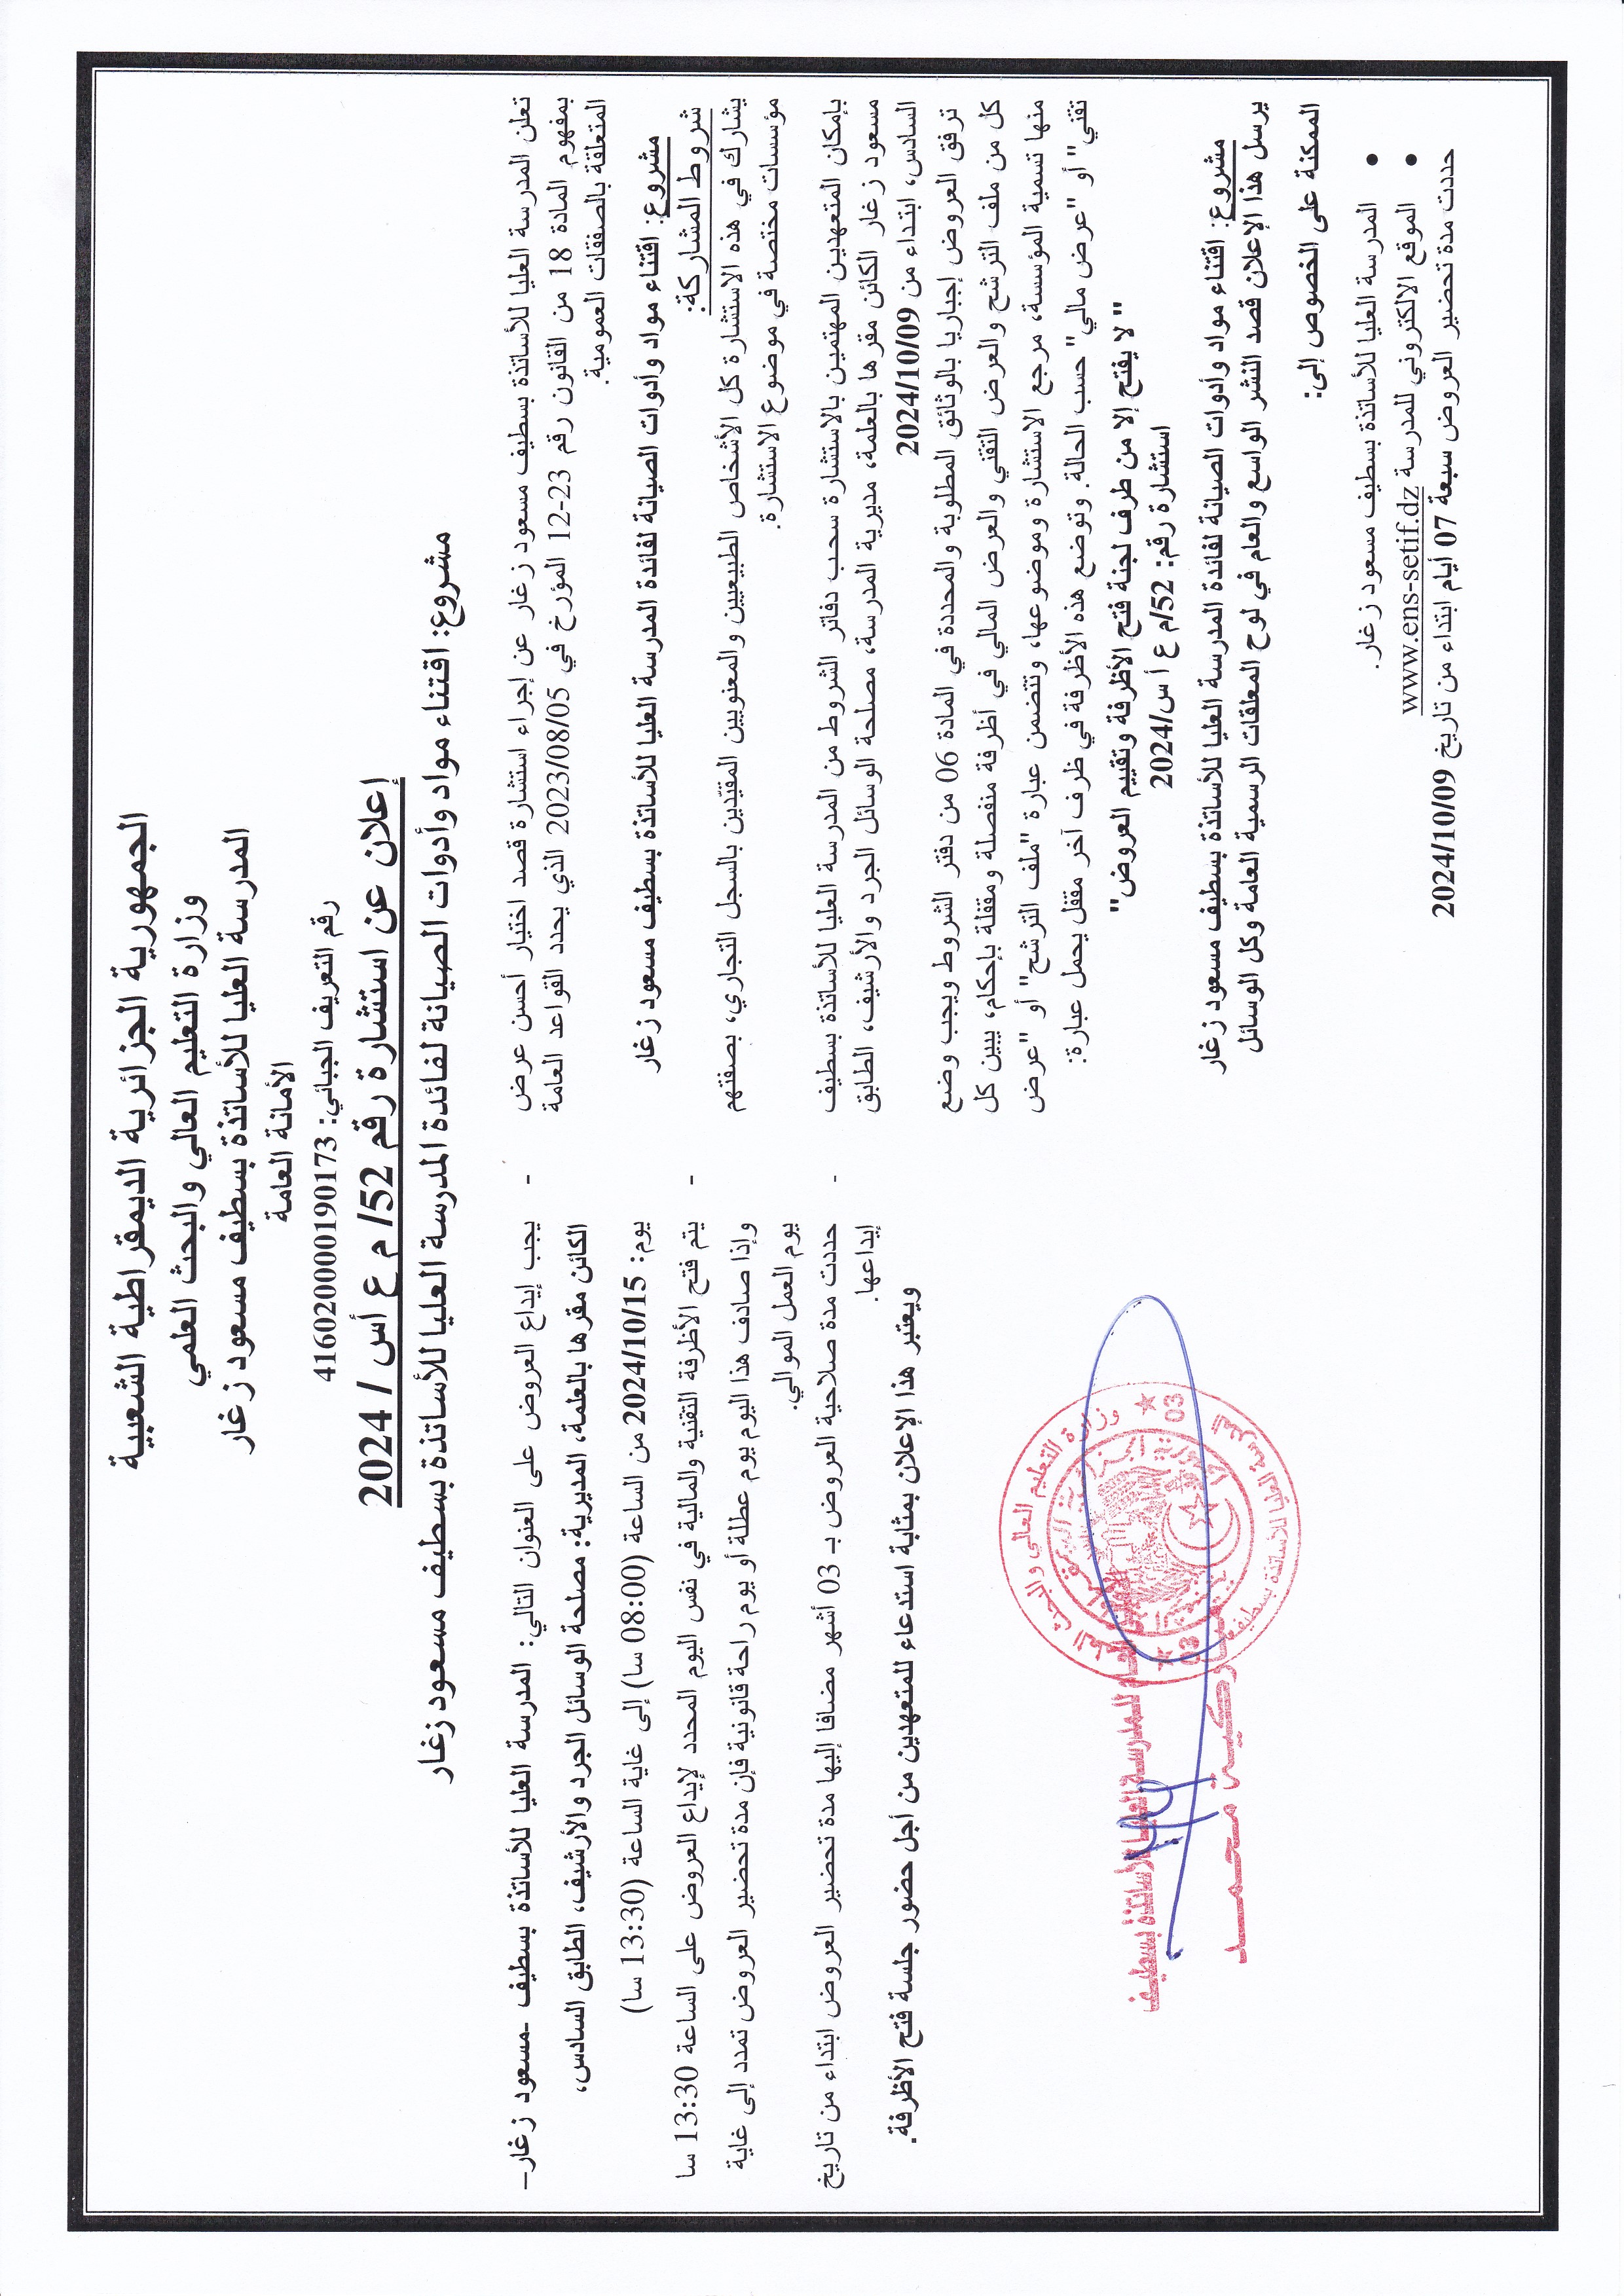 الجمهورية الجزائرية الديمقراطية الشعبية
وزارة التعليم العالي والبحث العلمي
المدرسة العليا للأساتذة بسطيف مسعود زغار
الأمانة العامة
رقم التعريف الجبائي: 416020000190173
إعلان عن استشارة رقم 52/ م ع أس / 2024
مشروع: اقتناء مواد وأدوات الصيانة لفائدة المدرسة العليا للأساتذة بسطيف مسعود زغار
تعلن المدرسة العليا للأساتذة بسطيف مسعود زغار عن إجراء استشارة قصد اختيار أحسن عرض
بمفهوم المادة 18 من القانون رقم 23-12 المؤرخ في 2023/08/05 الذي يحدد القواعد العامة
المتعلقة بالصفقات العمومية.
مشروع: اقتناء مواد وأدوات الصيانة لفائدة المدرسة العليا للأساتذة بسطيف مسعود زغار
شروط المشاركة:
يشارك في هذه الاستشارة كل الأشخاص الطبيعيين والمعنويين المقيّدين بالسجل التجاري، بصفتهم
مؤسسات مختصة في موضوع الاستشارة.
بإمكان المتعهدين المهتمين بالاستشارة سحب دفاتر الشروط من المدرسة العليا للأساتذة بسطيف
مسعود زغار الكائن مقرها بالعلمة، مديرية المدرسة، مصلحة الوسائل الجرد والأرشيف، الطابق
السادس، ابتداء من 2024/10/09
ترفق العروض إجباريا بالوثائق المطلوبة والمحددة في المادة 06 من دفتر الشروط ويجب وضع
كل من ملف الترشح والعرض التقني والعرض المالي في أظرفة منفصلة ومقفلة بإحكام، يبين كل
منها تسمية المؤسسة، مرجع الاستشارة وموضوعها، وتتضمن عبارة "ملف الترشح" أو "عرض
تقني" أو "عرض مالي" حسب الحالة. وتوضع هذه الأظرفة في ظرف آخر مقفل يحمل عبارة:
" لا يفتح إلا من طرف لجنة فتح الأظرفة وتقييم العروض"
استشارة رقم: 52/م ع أ س/2024
مشروع: اقتناء مواد وأدوات الصيانة لفائدة المدرسة العليا للأساتذة بسطيف مسعود زغار
يرسل هذا الإعلان قصد النشر الواسع والعام في لوح المعلقات الرسمية العامة وكل الوسائل
الممكنة على الخصوص إلى:
• المدرسة العليا للأساتذة بسطيف مسعود زغار.
• الموقع الالكتروني للمدرسة www.ens-setif.dz
حددت مدة تحضير العروض سبعة 07 أيام ابتداء من تاريخ 2024/10/09
- يجب إيداع العروض على العنوان التالي: المدرسة العليا للأساتذة بسطيف -مسعود زغار–
الكائن مقرها بالعلمة، المديرية: مصلحة الوسائل الجرد والأرشيف، الطابق السادس،
يوم: 2024/10/15 من الساعة (08:00 سا) إلى غاية الساعة (13:30 سا)
- يتم فتح الأظرفة التقنية والمالية في نفس اليوم المحدد لإيداع العروض على الساعة 13:30 سا
وإذا صادف هذا اليوم يوم عطلة أو يوم راحة قانونية فإن مدة تحضير العروض تمدد إلى غاية
يوم العمل الموالي.
- حددت مدة صلاحية العروض بـ 03 أشهر مضافا إليها مدة تحضير العروض ابتداء من تاريخ
إيداعها.
ويعتبر هذا الإعلان بمثابة استدعاء للمتعهدين من أجل حضور جلسة فتح الأظرفة.
وزارة التعليم العالي والبحث العلمي
المدرسة العليا للأساتذة بسطيف
03
03
العام للمدرسة العليا للأساتذة بسطيف
محمد